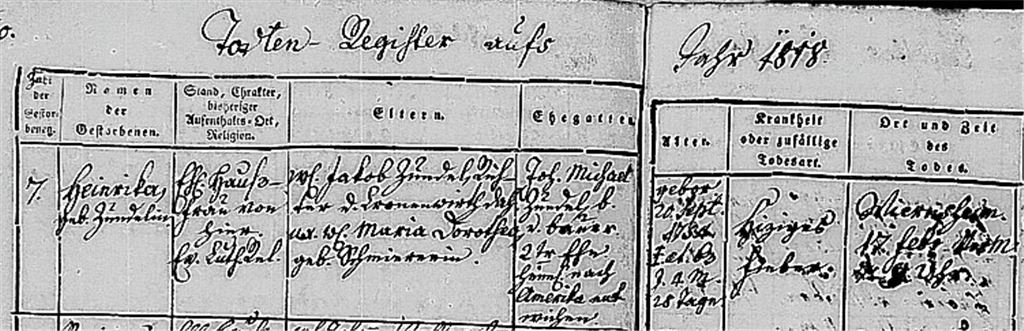 Todten-Register aufs
Jahr 1818.
Zahl
der
Gestor-
benen.
Namen
der
Gestorbenen.
Stand, Chrakter,
bisheriger
Aufenthalts-Ort,
Religion.
Eltern.
Ehegatten.
Alter.
Krankheit
oder zufällige
Todesart.
Ort und Zeit
des
Todes.
7.
Heinrika,
geb. Zündelin.
Hauß-
frau von
hier.
Ev. Luth. Rel.
Jakob Zündel,
ter d. Cronenwirth dah
Maria Dorothea
geb.
Joh. Michael
Zündel, b.
u. bauer.
2tr Ehe
nach
Amerika ent
wichen.
gebor.
20. Sept.
J. 4. M.
28 tage
Hiziges
Fieber.
Wiernsheim.
17. Febr. Vorm
Uhr.